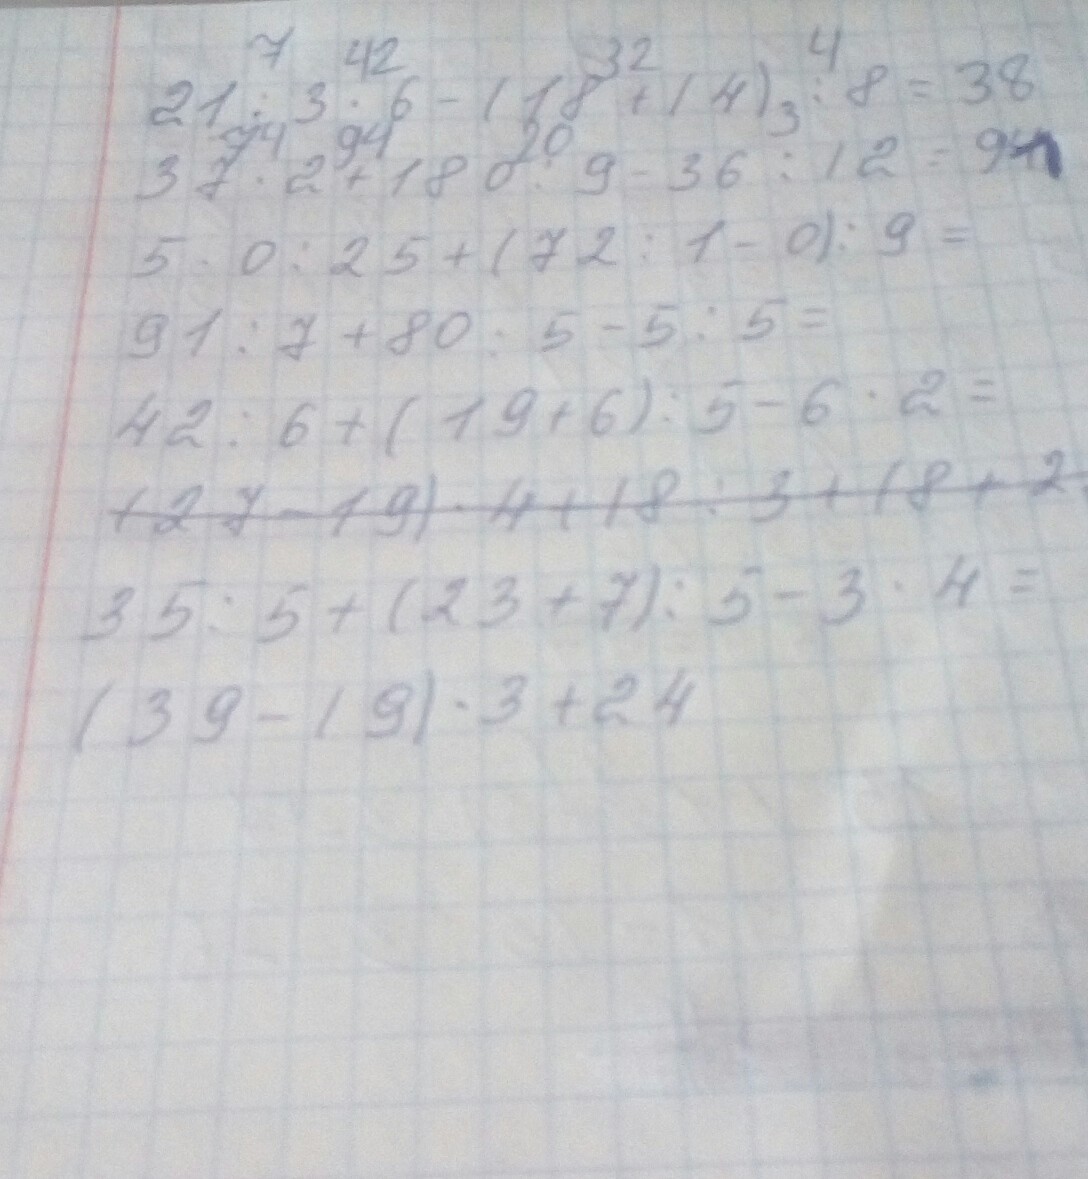 7 42 32 4
21 : 3 · 6 - (18 + 14) : 8 = 38
74 94 20 3
37 · 2 + 180 : 9 - 36 : 12 = 91
5 · 0 : 25 + (72 : 1 - 0) : 9 =
91 : 7 + 80 : 5 - 5 : 5 =
42 : 6 + (19 + 6) : 5 - 6 · 2 =
(27 - 19) · 4 + 18 : 3 + (8 + 2
35 : 5 + (23 + 7) : 5 - 3 · 4 =
(39 - 19) · 3 + 24